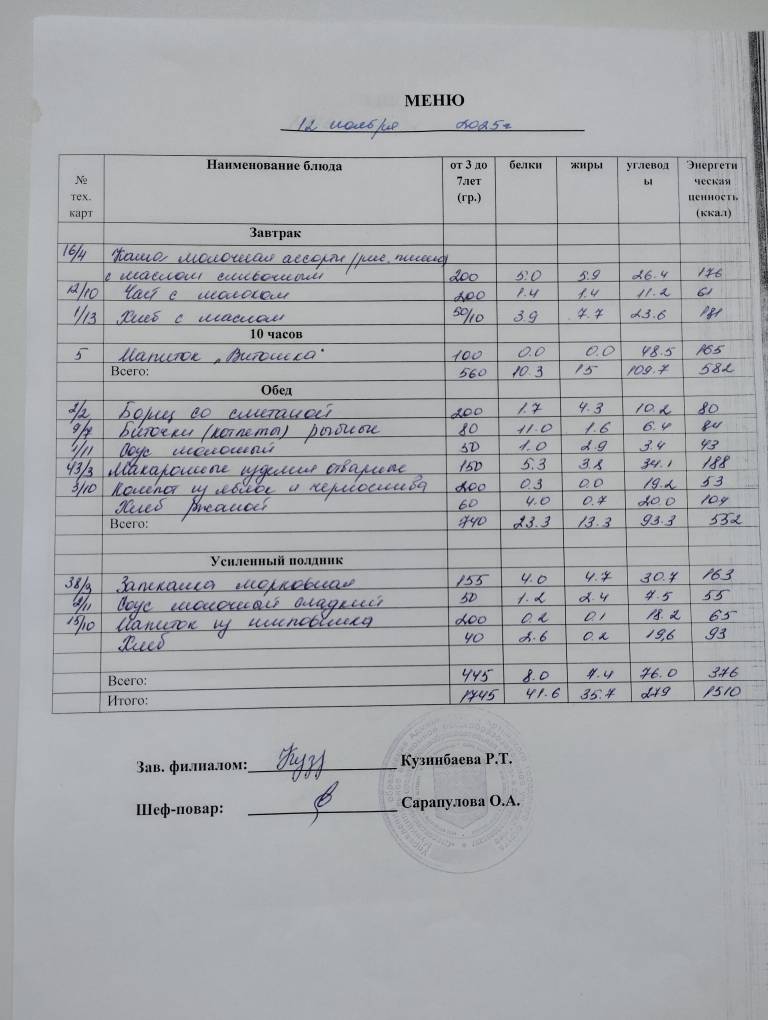 МЕНЮ
12 ноября 2025г
№ тех. карт Наименование блюда от 3 до 7лет (гр.) белки жиры углеводы Энергетическая ценность (ккал)
Завтрак
16/4 Каша молочная ассорти (рис, пшено)
с маслом сливочным 200 5.0 5.9 26.4 176
12/10 Чай с молоком 200 1.4 1.4 11.2 61
1/13 Хлеб с маслом 50/10 3.9 7.7 23.6 181
10 часов
5 Напиток „Витошка" 100 0.0 0.0 48.5 165
Всего: 560 10.3 15 109.7 582
Обед
2/2 Борщ со сметаной 200 1.7 4.3 10.2 80
9/7 Биточки (котлеты) рыбные 80 11.0 1.6 6.4 84
1/11 Соус молочный 50 1.0 2.9 3.4 43
43/3 Макаронные изделия отварные 150 5.3 3.8 34.1 188
3/10 Компот из яблок и чернослива 200 0.3 0.0 19.2 53
Хлеб ржаной 60 4.0 0.7 20.0 104
Всего: 740 23.3 13.3 93.3 552
Усиленный полдник
38/3 Запеканка морковная 155 4.0 4.7 30.7 163
2/11 Соус молочный сладкий 50 1.2 2.4 7.5 55
15/10 Напиток из шиповника 200 0.2 0.1 18.2 65
Хлеб 40 2.6 0.2 19,6 93
Всего: 445 8.0 7.4 76.0 376
Итого: 1745 41.6 35.7 279 1510
Зав. филиалом: Куз Кузинбаева Р.Т.
Шеф-повар: Сарапулова О.А.